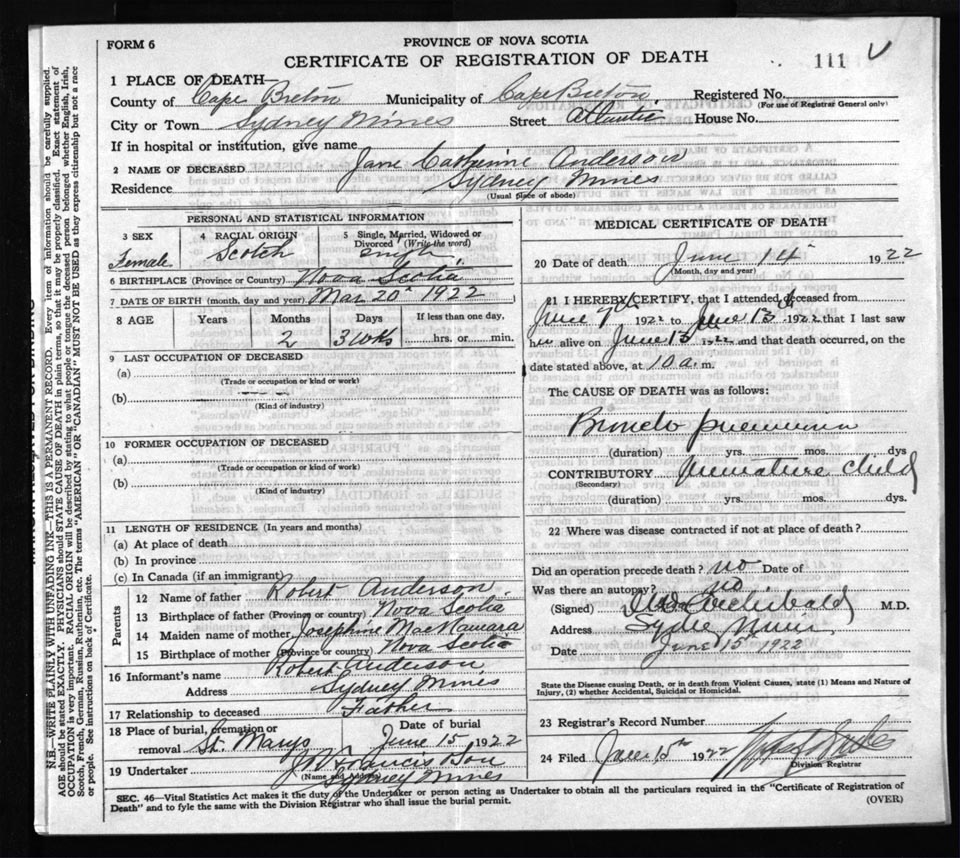 FORM 6
PROVINCE OF NOVA SCOTIA
CERTIFICATE OF REGISTRATION OF DEATH
111 V
1 PLACE OF DEATH
County of Cape Breton Municipality of Cape Breton Registered No.
(For use of Registrar General only)
City or Town Sydney Mines Street Atlantic House No.
If in hospital or institution, give name
2 NAME OF DECEASED Jane Catherine Anderson
Residence Sydney Mines
(Usual place of abode)
PERSONAL AND STATISTICAL INFORMATION
3 SEX Female
4 RACIAL ORIGIN Scotch
5 Single, Married, Widowed or Divorced (Write the word)
6 BIRTHPLACE (Province or Country) Nova Scotia
7 DATE OF BIRTH (month, day and year) Mar 20th 1922
8 AGE Years Months Days If less than one day,
2 3 wks hrs. or min.
9 LAST OCCUPATION OF DECEASED
(a)
(Trade or occupation or kind or work)
(b)
(Kind of industry)
10 FORMER OCCUPATION OF DECEASED
(a)
(Trade or occupation or kind of work)
(b)
(Kind of industry)
11 LENGTH OF RESIDENCE (In years and months)
(a) At place of death
(b) In province
(c) In Canada (if an immigrant)
Parents
12 Name of father Robert Anderson
13 Birthplace of father (Province or country) Nova Scotia
14 Maiden name of mother Josephine MacNamara
15 Birthplace of mother (Province or country) Nova Scotia
16 Informant's name Robert Anderson
Address Sydney Mines
17 Relationship to deceased Father
18 Place of burial, cremation or removal St. Marys Date of burial June 15 1922
19 Undertaker J Francis
(Name and Address) Sydney Mines
MEDICAL CERTIFICATE OF DEATH
20 Date of death June 14 1922
(Month, day and year)
21 I HEREBY CERTIFY, that I attended deceased from
June 7th 1922 to June 13th 1922 that I last saw
her alive on June 13 1922 and that death occurred, on the
date stated above, at 10 a. m.
The CAUSE OF DEATH was as follows:
Broncho pneumonia
(duration) yrs. mos. dys
CONTRIBUTORY Premature child
(Secondary)
(duration) yrs. mos. dys.
22 Where was disease contracted if not at place of death?
Did an operation precede death? no Date of
Was there an autopsy? no
(Signed) Archibald M.D.
Address Sydney Mines
Date June 15th 1922
State the Disease causing Death, or in death from Violent Causes, state (1) Means and Nature of
Injury, (2) whether Accidental, Suicidal or Homicidal.
23 Registrar's Record Number
24 Filed June 15th 1922
Division Registrar
SEC. 46—Vital Statistics Act makes it the duty of the Undertaker or person acting as Undertaker to obtain all the particulars required in the "Certificate of Registration of
Death" and to fyle the same with the Division Registrar who shall issue the burial permit.
(OVER)
N.B.—WRITE PLAINLY WITH UNFADING INK—THIS IS A PERMANENT RECORD. Every item of information should be carefully supplied.
AGE should be stated EXACTLY. PHYSICIANS should STATE CAUSE OF DEATH in plain terms, so that it may be properly classified. Exact statement of
OCCUPATION is very important. RACIAL ORIGIN will be described by stating to what people or tongue the deceased person belonged whether English, Irish,
Scotch, French, German, Russian, Ruthenian, etc. The terms "AMERICAN" OR "CANADIAN" MUST NOT BE USED as they express citizenship but not a race
or people. See instructions on back of Certificate.